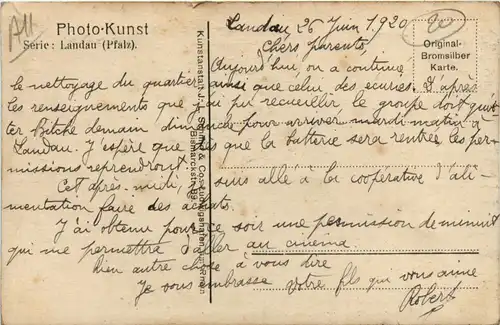 All
Photo-Kunst
Serie: Landau (Pfalz).
20
Original-
Bromsilber
Karte.
Landau 26 Juin 1920
Chers parents,
Aujourd'hui, on a continué
le nettoyage du quartier ainsi que celui des écuries. D'après
les renseignements que j'ai pu recueillir, le groupe doit quit-
ter Bitche demain dimanche pour arriver mardi matin à
Landau. J'espère que dès que la batterie sera rentrée les per-
missions reprendront.
Cet après-midi, je suis allé à la coopérative d'ali-
mentation faire des achats.
J'ai obtenu pour ce soir une permission de minuit
qui me permettra d'aller au cinéma.
Rien autre chose à vous dire
Je vous embrasse votre fils qui vous aime
Robert
Kunstanstalt H. & Co. Ludwigshafen am Rhein
Bismarckstr.